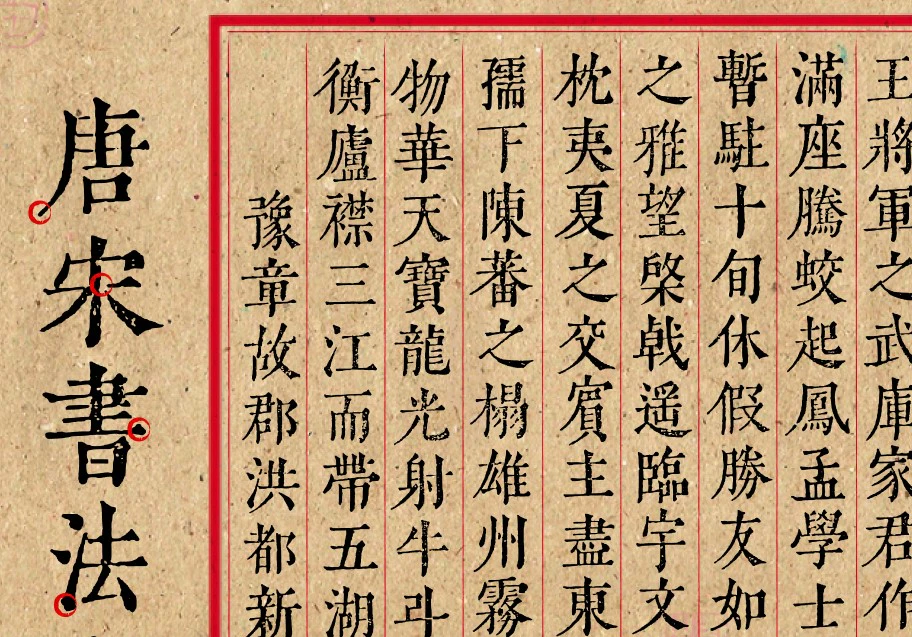 唐宋書法
豫章故郡洪都新
衡廬襟三江而帶五湖
物華天寶龍光射牛斗
孺下陳蕃之榻雄州霧
枕夷夏之交賓主盡東
之雅望棨戟遥臨宇文
暫駐十旬休假勝友如
滿座騰蛟起鳳孟學士
王將軍之武庫家君作